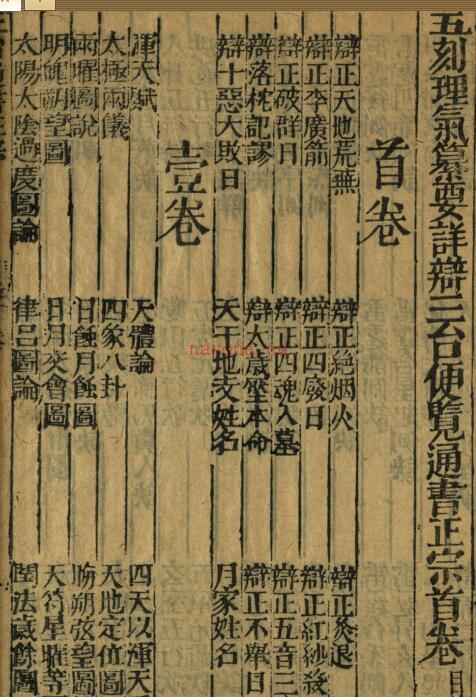 五刻理氣纂要詳辯三台便覽通書正宗首卷 目
首卷
辯正天地荒蕪 辯正絕烟火 辯正灸退
辯正李廣箭 辯正四廢日 辯正紅紗殺
辯正破群日 辯正四魂入墓 辯正五音三
辯落枕記謬 辯太歲坐本命 辯正不舉日
辯十惡大敗日 天干地支姓名 月家姓名
壹卷
渾天賦 天體論 四天以渾天
太極兩儀 四象八卦 天地定位圖
兩曜圖說 日蝕月蝕圖 晦朔弦望圖
明魄朔望圖 日月交會圖 天符星 等
太陽太陰過度圖論 律呂圖論 閏法歲餘圖